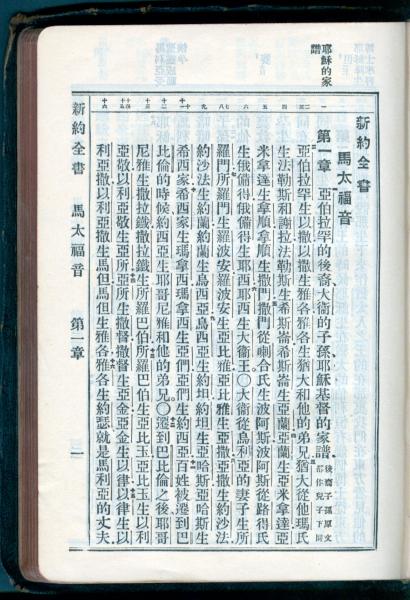 耶穌的家譜
新約全書
馬太福音
第一章 亞伯拉罕的後裔大衞的子孫耶穌基督的家譜 後裔子孫原文都作兒子下同
亞伯拉罕生以撒以撒生雅各雅各生猶大和他的弟兄猶大從他瑪氏
生法勒斯和謝拉法勒斯生希斯崙希斯崙生亞蘭亞蘭生亞米拿達亞
米拿達生拿順拿順生撒門撒門從喇合氏生波阿斯波阿斯從路得氏
生俄備得俄備得生耶西耶西生大衞王○大衞從烏利亞的妻子生所
羅門所羅門生羅波安羅波安生亞比雅亞比雅生亞撒亞撒生約沙法
約沙法生約蘭約蘭生烏西亞烏西亞生約坦約坦生亞哈斯亞哈斯生
希西家希西家生瑪拿西瑪拿西生亞們亞們生約西亞百姓被遷到巴
比倫的時候約西亞生耶哥尼雅和他的弟兄○遷到巴比倫之後耶哥
尼雅生撒拉鐵撒拉鐵生所羅巴伯所羅巴伯生亞比玉亞比玉生以利
亞敬以利亞敬生亞所亞所生撒督撒督生亞金亞金生以律以律生以
利亞撒以利亞撒生馬但馬但生雅各雅各生約瑟就是馬利亞的丈夫
新約全書 馬太福音 第一章 一